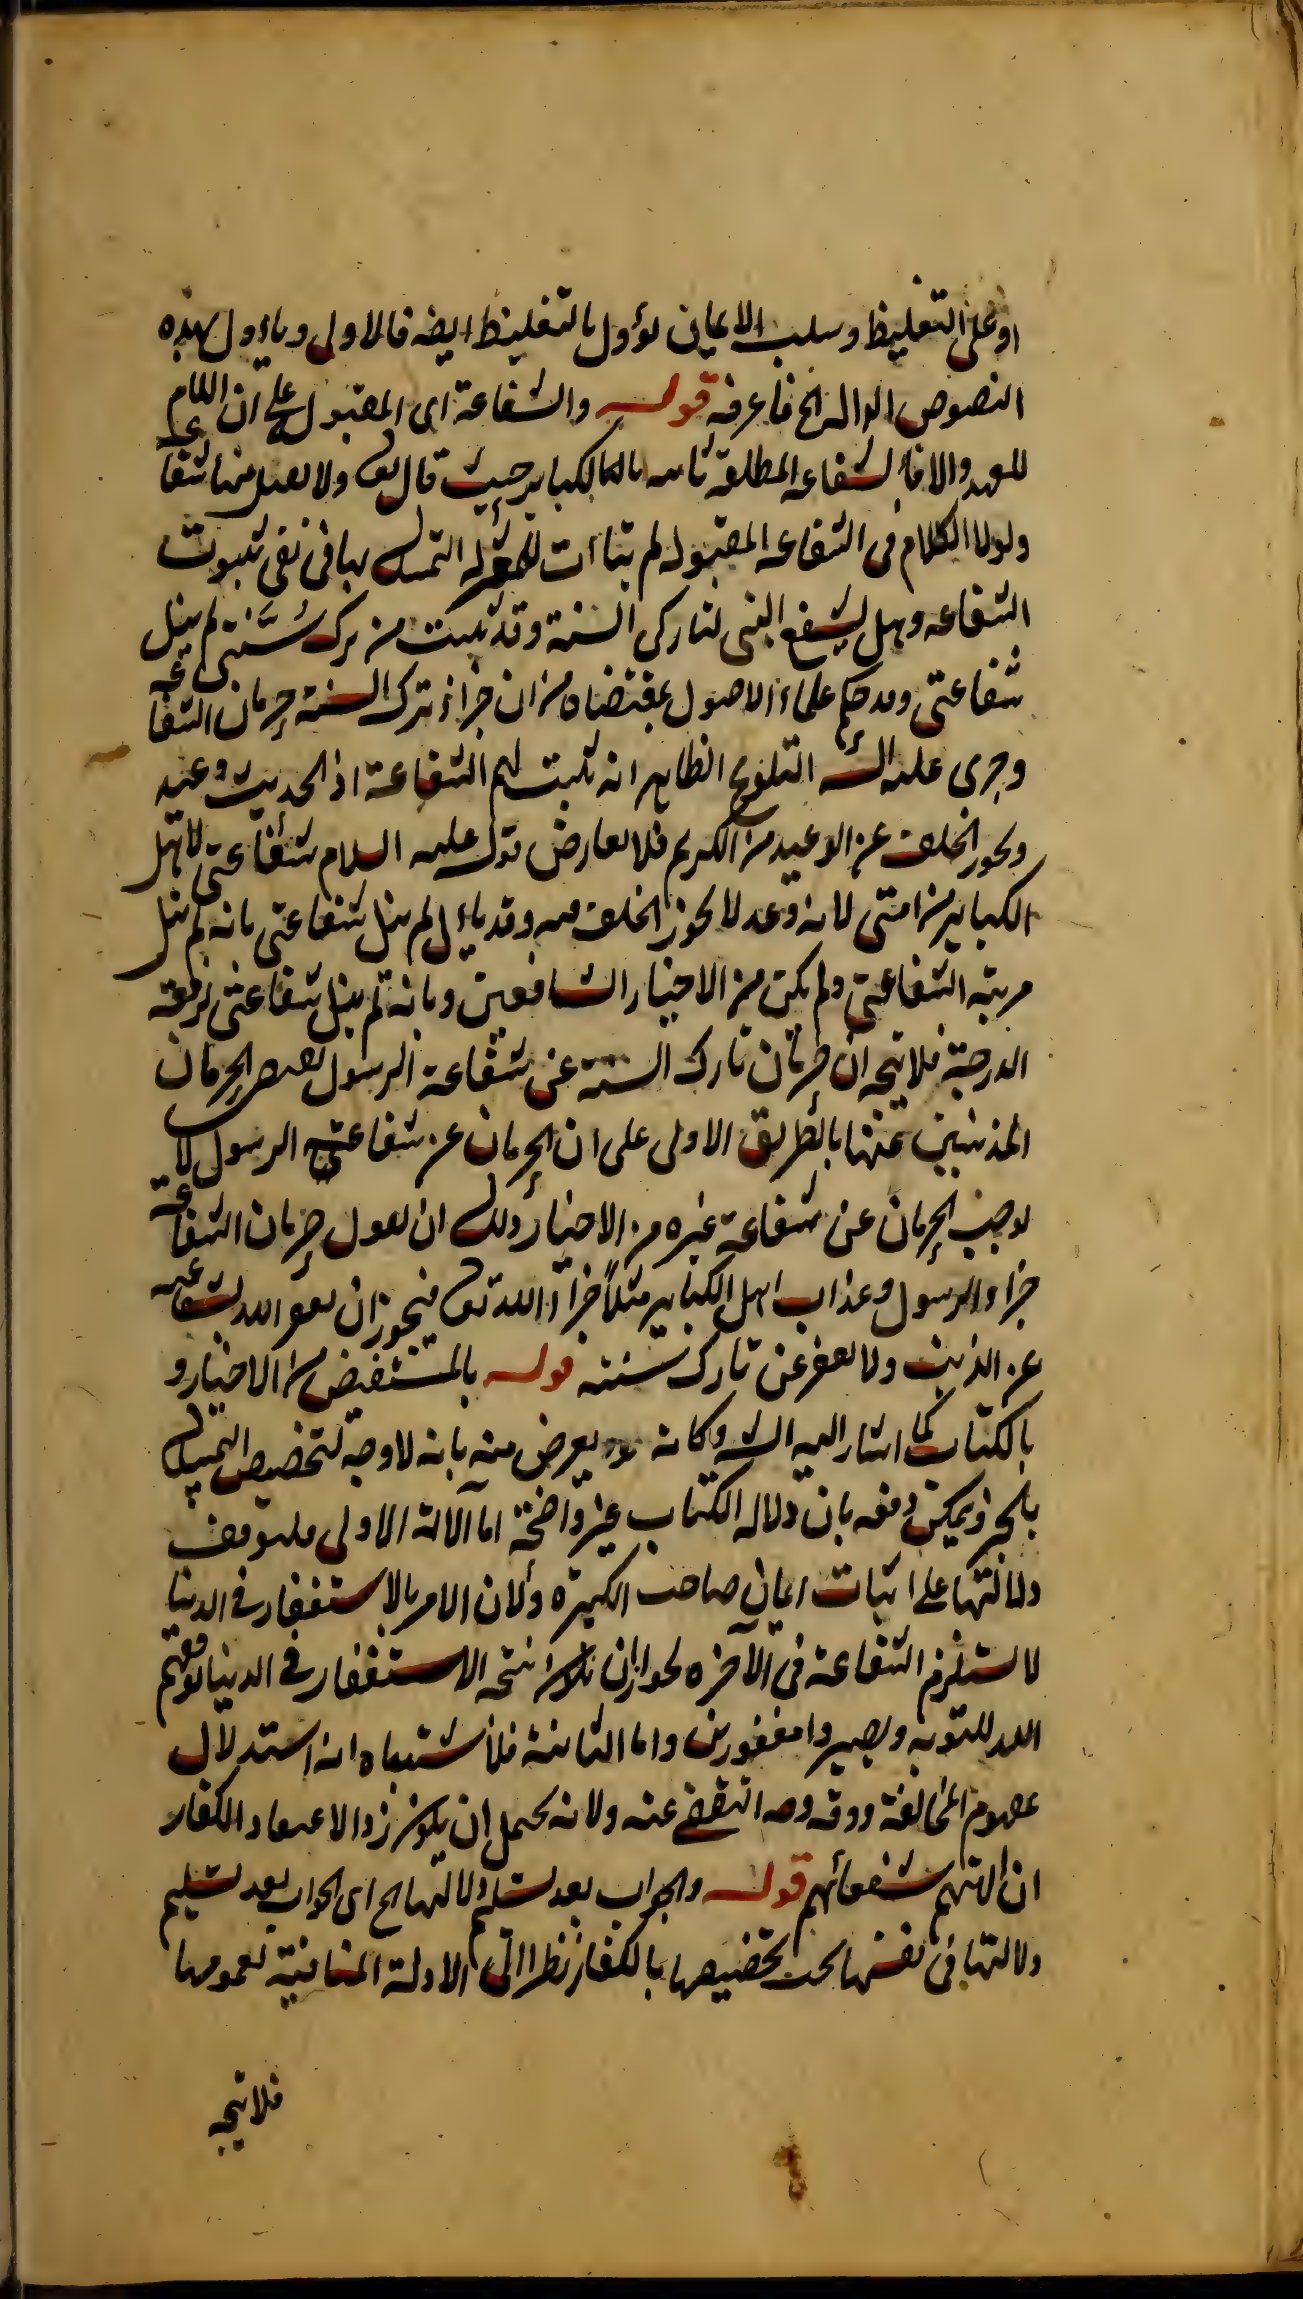 او على التغليظ وسلب الايمان لؤول بالتغليظ ايضه فالاولى وياءول بهذه
النصوص الدالة الخ فاعرفه قوله والشفاعة اى المقبول على ان اللام
للعهد والا فالشفاعه المطلقة ثابته بالكبائر حيث قال تع ولا يقبل منها شفاعة
ولولا الكلام فى الشفاعه المقبوله لم يتاءت للمعتزله التمسك بها فى نفى ثبوت
الشفاعه وهل يشفع النبى لتاركى السنة وقد ثبت من ترك سنتى لم ينل
شفاعتى وقد حكم علماء الاصول بمقتضاه من ان جزاء ترك السنة حرمان الشفاعة
وجرى عليه الشه التلويح الظاهر انه يثبت لهم الشفاعة اذ الحديث وعيد
ويجوز الخلف عن الوعيد من الكريم فلا يعارض قوله عليه السلام شفاعتى لاهل
الكباير من امتى لانه وعد لا يجوز الخلف فيه وقد ياءول لم ينل شفاعتى بانه لم ينل
مرتبه الشفاعتى ولم يكن من الاخيار الشافعين وبانه لم ينل شفاعتى لرفعة
الدرجة فلا يتجه ان حرمان تارك السنة عن شفاعة الرسول يقتضى الحرمان
المذنبين عنها بالطريق الاولى على ان الحرمان عن شفاعتى الرسول لا
يوجب الحرمان عن شفاعة غيره من الاخيار ولك ان تقول حرمان الشفاعة
جزاء الرسول وعذاب اهل الكباير مثلاً جزاء الله تع فيجوز ان يعفو الله بشفاعته
عن الذنب ولا يعفو عن تارك سنته قوله بالمستفيض من الاخيار و
بالكتاب كما اشار اليه الشه وكانه يعرض منه بانه لا وجه لتخصيص التمسك
بالخبر ويمكن دفعه بان دلاله الكتاب غير واضحة اما الآلة الاولى فلتوقف
دلالتها على اثبات ايمان صاحب الكبيره ولان الامر بالاستغفار فى الدنيا
لا يستلزم الشفاعة فى الآخره لجواز ان يكون نتيجه الاستغفار فى الدنيا توفيقهم
الله للتوبه ويصيروا مغفورين واما الثانية فلاشتباه انه استدلال
بمفهوم المخالفة ووقه وجه التقفى عنه ولانه يحتمل ان يكون رد الاعتقاد الكفار
ان الهتهم شفعائهم قوله والجواب بعد تسليم دلالتها الخ اى الجواب بعد تسليم
دلالتها فى نفسها يجب تخصيصها بالكفار نظرا الى الادلة المنافية لعمومها
فلا يتجه